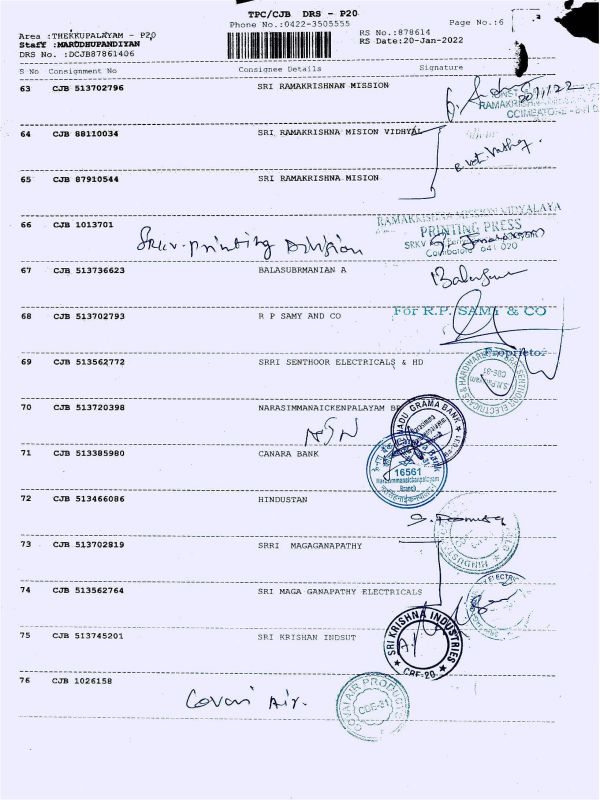 TPC/CJB DRS - P20
Phone No.:0422-3505555
Page No.:6
Area :THEKKUPALAYAM - P20
Staff :MARUDHUPANDIYAN
DRS No. :DCJB87861406
RS No.:878614
RS Date:20-Jan-2022
S No Consignment No Consignee Details Signature
63 CJB 513702796 SRI RAMAKRISHNAN MISSION
64 CJB 88110034 SRI, RAMAKRISHNA MISION VIDHYAL
65 CJB 87910544 SRI RAMAKRISHNA MISION
66 CJB 1013701
SRKV-Printing Division
RAMAKRISHNA MISSION VIDYALAYA
PRINTING PRESS
SRKV
Coimbatore 641 020
67 CJB 513736623 BALASUBRMANIAN A
68 CJB 513702793 R P SAMY AND CO
For R.P. SAMY & CO
Proprietor
69 CJB 513562772 SRRI SENTHOOR ELECTRICALS & HD
70 CJB 513720398 NARASIMMANAICKENPALAYAM
NSN
GRAMA BANK
71 CJB 513385980 CANARA BANK
16561
Branch
72 CJB 513466086 HINDUSTAN
73 CJB 513702819 SRRI MAGAGANAPATHY
74 CJB 513562764 SRI MAGA GANAPATHY ELECTRICALS
75 CJB 513745201 SRI KRISHAN INDSUT
SRI KRISHNA INDUSTRIES
CBE-20
76 CJB 1026158
Covai Air.
COVAI AIR PRODUCTS
CBE-31